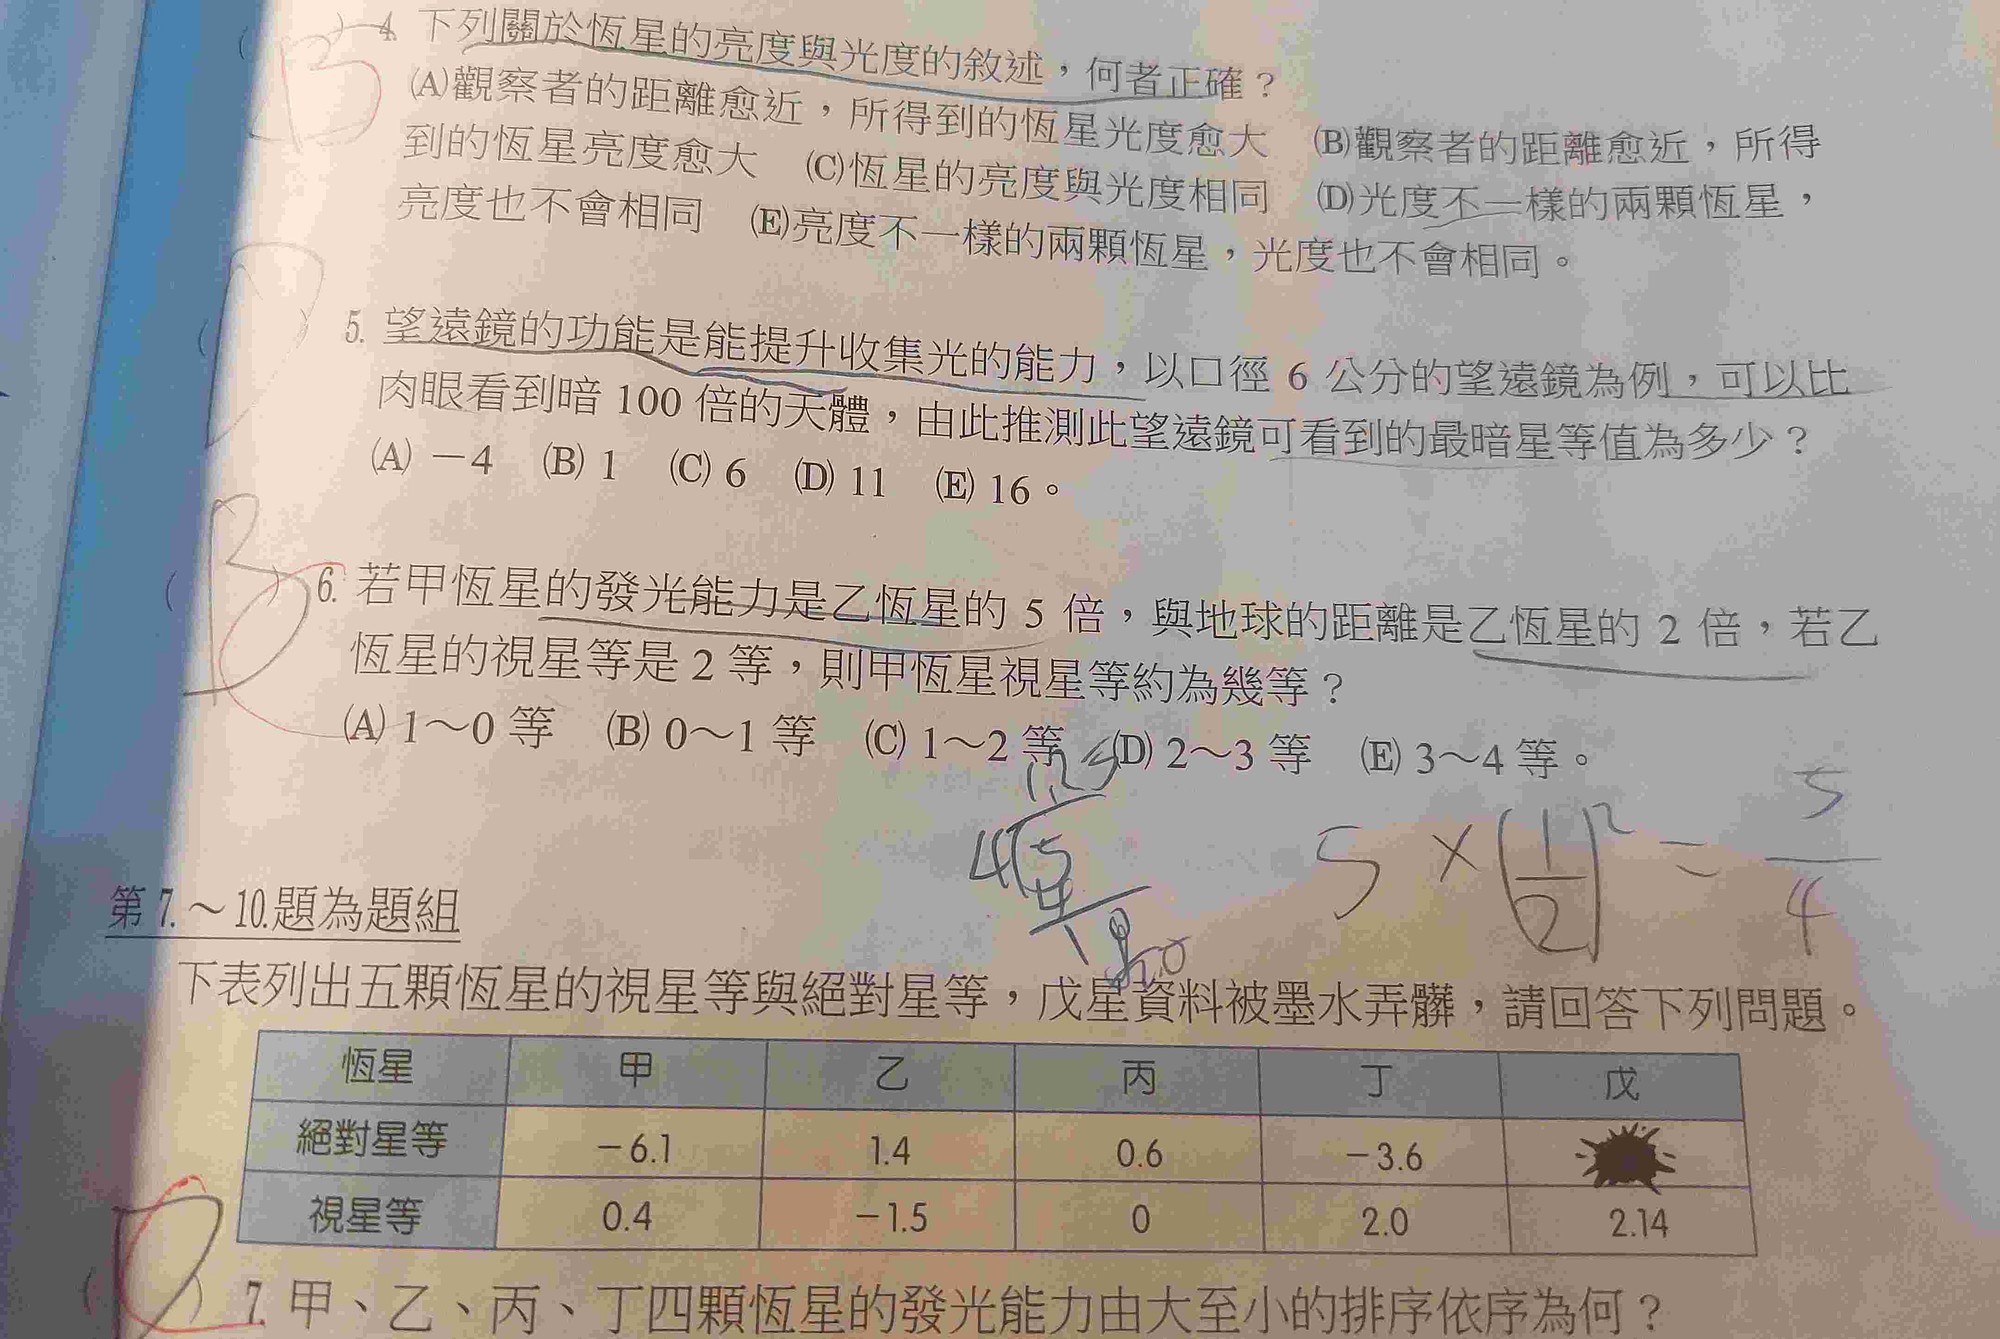 ( B ) 4. 下列關於恆星的亮度與光度的敘述，何者正確？
(A)觀察者的距離愈近，所得到的恆星光度愈大 (B)觀察者的距離愈近，所得
到的恆星亮度愈大 (C)恆星的亮度與光度相同 (D)光度不一樣的兩顆恆星，
亮度也不會相同 (E)亮度不一樣的兩顆恆星，光度也不會相同。
( D ) 5. 望遠鏡的功能是能提升收集光的能力，以口徑 6 公分的望遠鏡為例，可以比
肉眼看到暗 100 倍的天體，由此推測此望遠鏡可看到的最暗星等值為多少？
(A) －4 (B) 1 (C) 6 (D) 11 (E) 16。
( B ) 6. 若甲恆星的發光能力是乙恆星的 5 倍，與地球的距離是乙恆星的 2 倍，若乙
恆星的視星等是 2 等，則甲恆星視星等約為幾等？
(A) 1～0 等 (B) 0～1 等 (C) 1～2 等 (D) 2～3 等 (E) 3～4 等。
5 × (1/2)² = 5/4
第 7.～10.題為題組
下表列出五顆恆星的視星等與絕對星等，戊星資料被墨水弄髒，請回答下列問題。
恆星 甲 乙 丙 丁 戊
絕對星等 －6.1 1.4 0.6 －3.6
視星等 0.4 －1.5 0 2.0 2.14
7. 甲、乙、丙、丁四顆恆星的發光能力由大至小的排序依序為何？